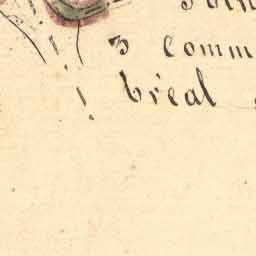 3 comm
bréal